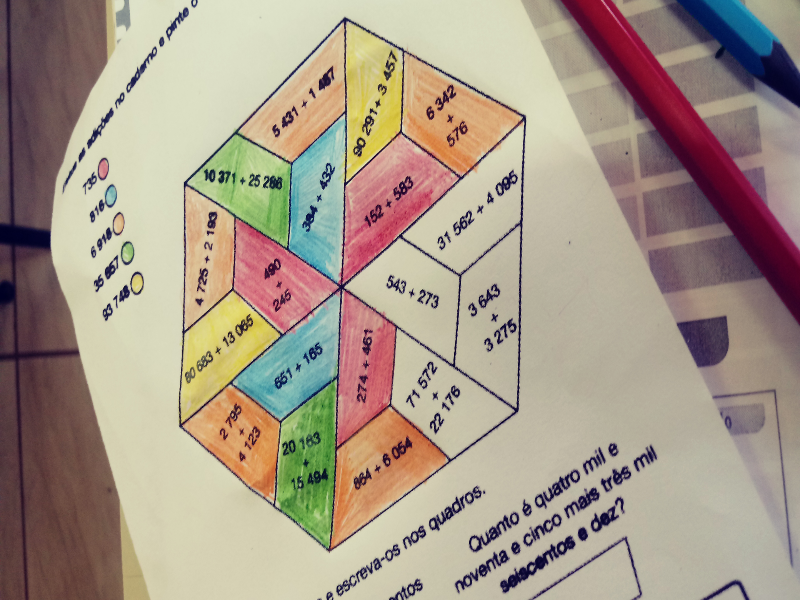 as adições no caderno e pinte o
735
816
6 918
35 657
93 748
5 431 + 1 487
90 291 + 3 457
6 342
+
576
10 371 + 25 286
384 + 432
152 + 583
31 562 + 4 095
4 725 + 2 193
490
+
245
543 + 273
3 643
+
3 275
80 683 + 13 065
651 + 165
274 + 461
71 572
+
22 176
2 795
+
4 123
20 163
+
15 494
864 + 6 054
e escreva-os nos quadros.
entos
Quanto é quatro mil e
noventa e cinco mais três mil
seiscentos e dez?